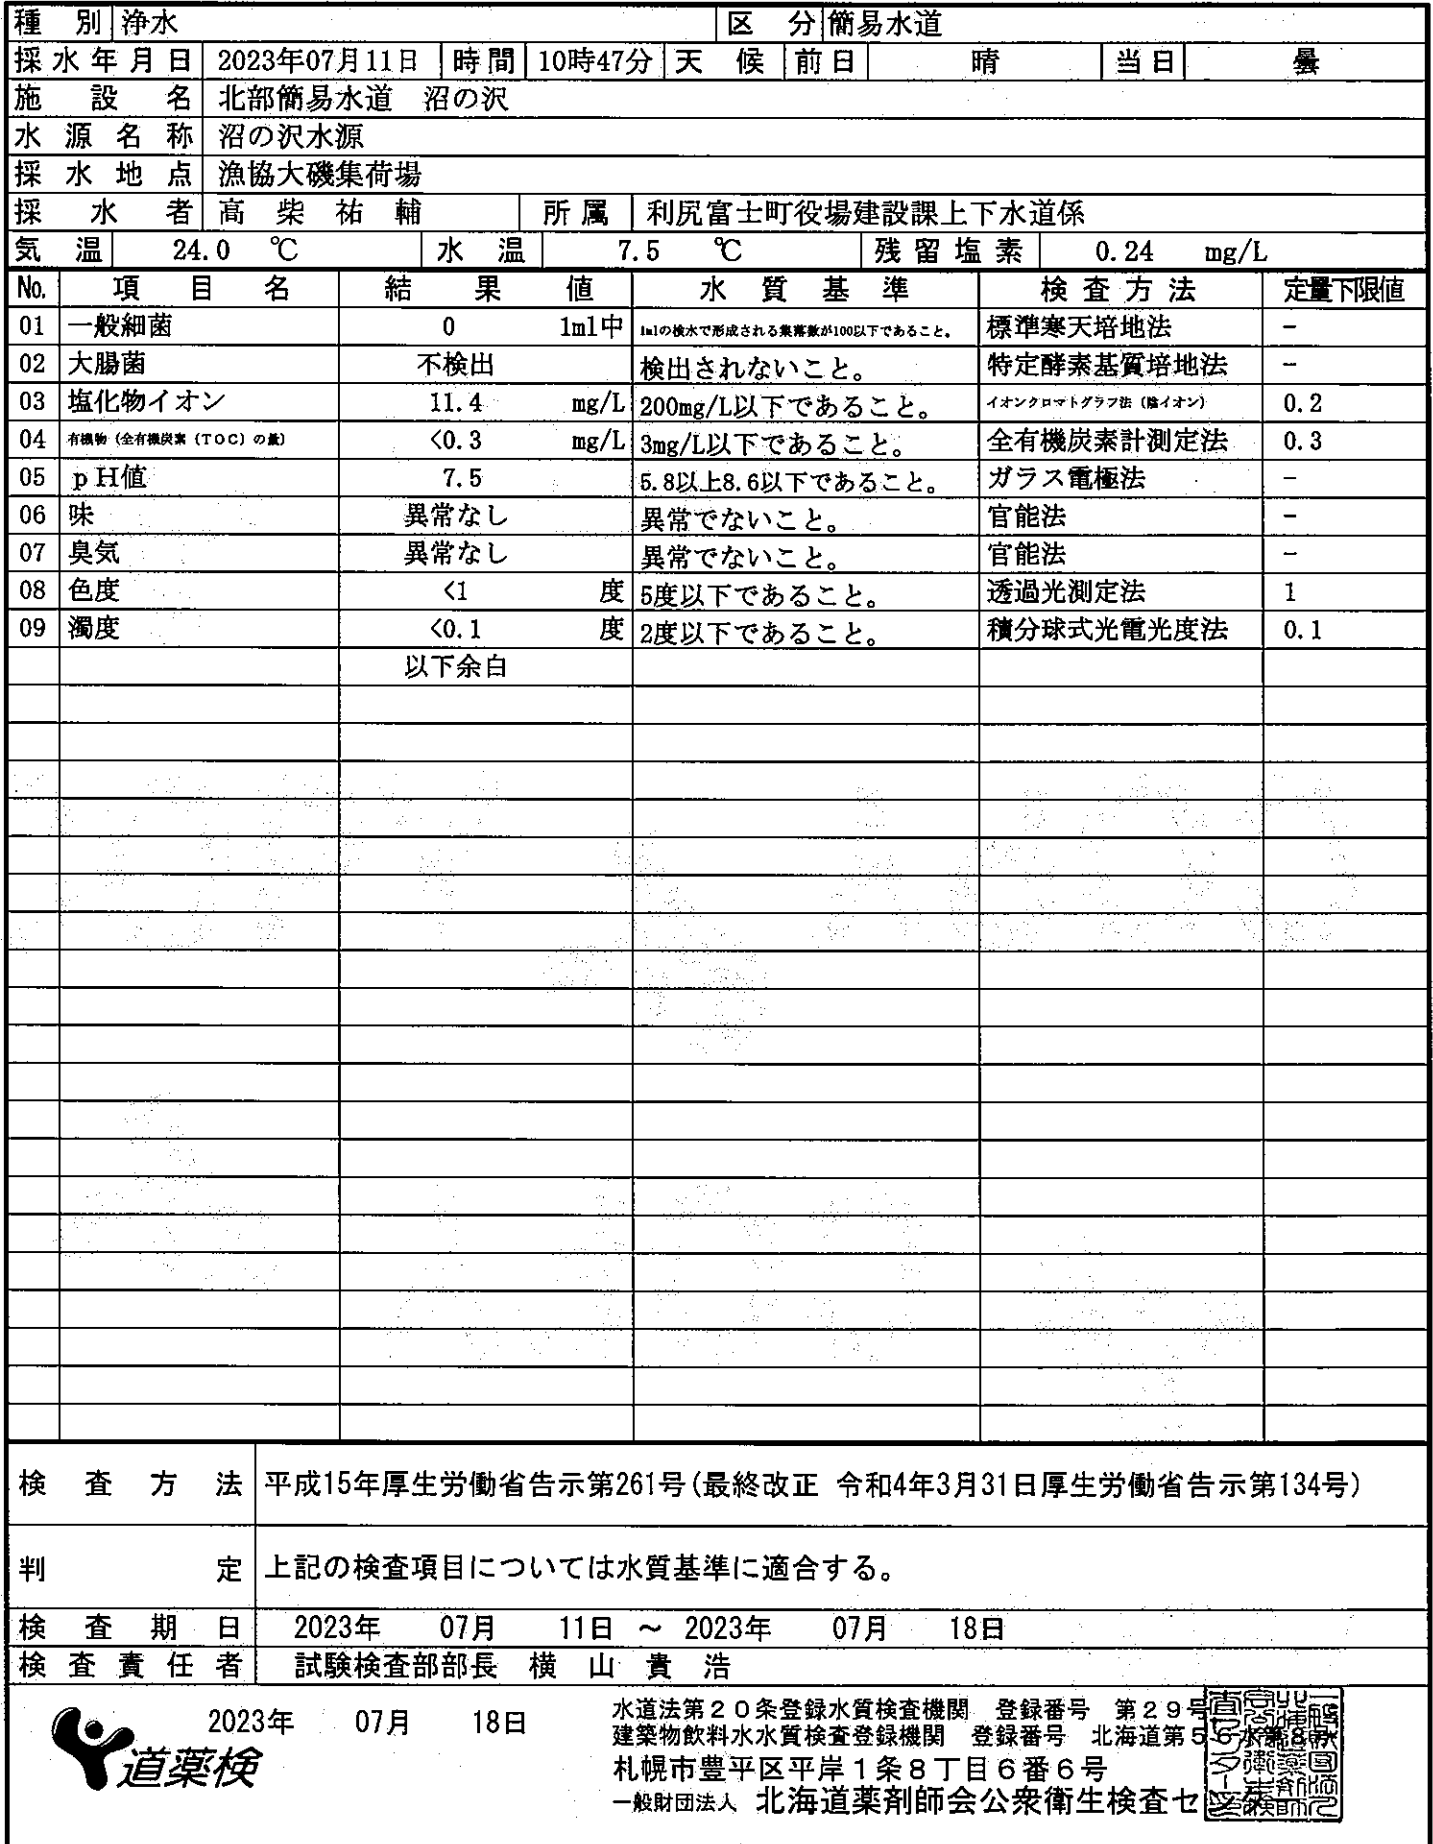 種 別 浄水 区 分 簡易水道
採水年月日 2023年07月11日 時間 10時47分 天 候 前日 晴 当日 曇
施 設 名 北部簡易水道 沼の沢
水 源 名 称 沼の沢水源
採 水 地 点 漁協大磯集荷場
採 水 者 高 柴 祐 輔 所属 利尻富士町役場建設課上下水道係
気 温 24.0 ℃ 水 温 7.5 ℃ 残留塩素 0.24 mg/L
No. 項 目 名 結 果 値 水 質 基 準 検査方法 定量下限値
01 一般細菌 0 1ml中 1mlの検水で形成される集落数が100以下であること。 標準寒天培地法 -
02 大腸菌 不検出 検出されないこと。 特定酵素基質培地法 -
03 塩化物イオン 11.4 mg/L 200mg/L以下であること。 イオンクロマトグラフ法（陰イオン） 0.2
04 有機物（全有機炭素（TOC）の量） <0.3 mg/L 3mg/L以下であること。 全有機炭素計測定法 0.3
05 pH値 7.5 5.8以上8.6以下であること。 ガラス電極法 -
06 味 異常なし 異常でないこと。 官能法 -
07 臭気 異常なし 異常でないこと。 官能法 -
08 色度 <1 度 5度以下であること。 透過光測定法 1
09 濁度 <0.1 度 2度以下であること。 積分球式光電光度法 0.1
以下余白
検 査 方 法 平成15年厚生労働省告示第261号(最終改正 令和4年3月31日厚生労働省告示第134号)
判 定 上記の検査項目については水質基準に適合する。
検 査 期 日 2023年 07月 11日 ～ 2023年 07月 18日
検 査 責 任 者 試験検査部部長 横 山 貴 浩
2023年 07月 18日
道薬検
水道法第20条登録水質検査機関 登録番号 第29号
建築物飲料水水質検査登録機関 登録番号 北海道第56水第8号
札幌市豊平区平岸1条8丁目6番6号
一般財団法人 北海道薬剤師会公衆衛生検査センター